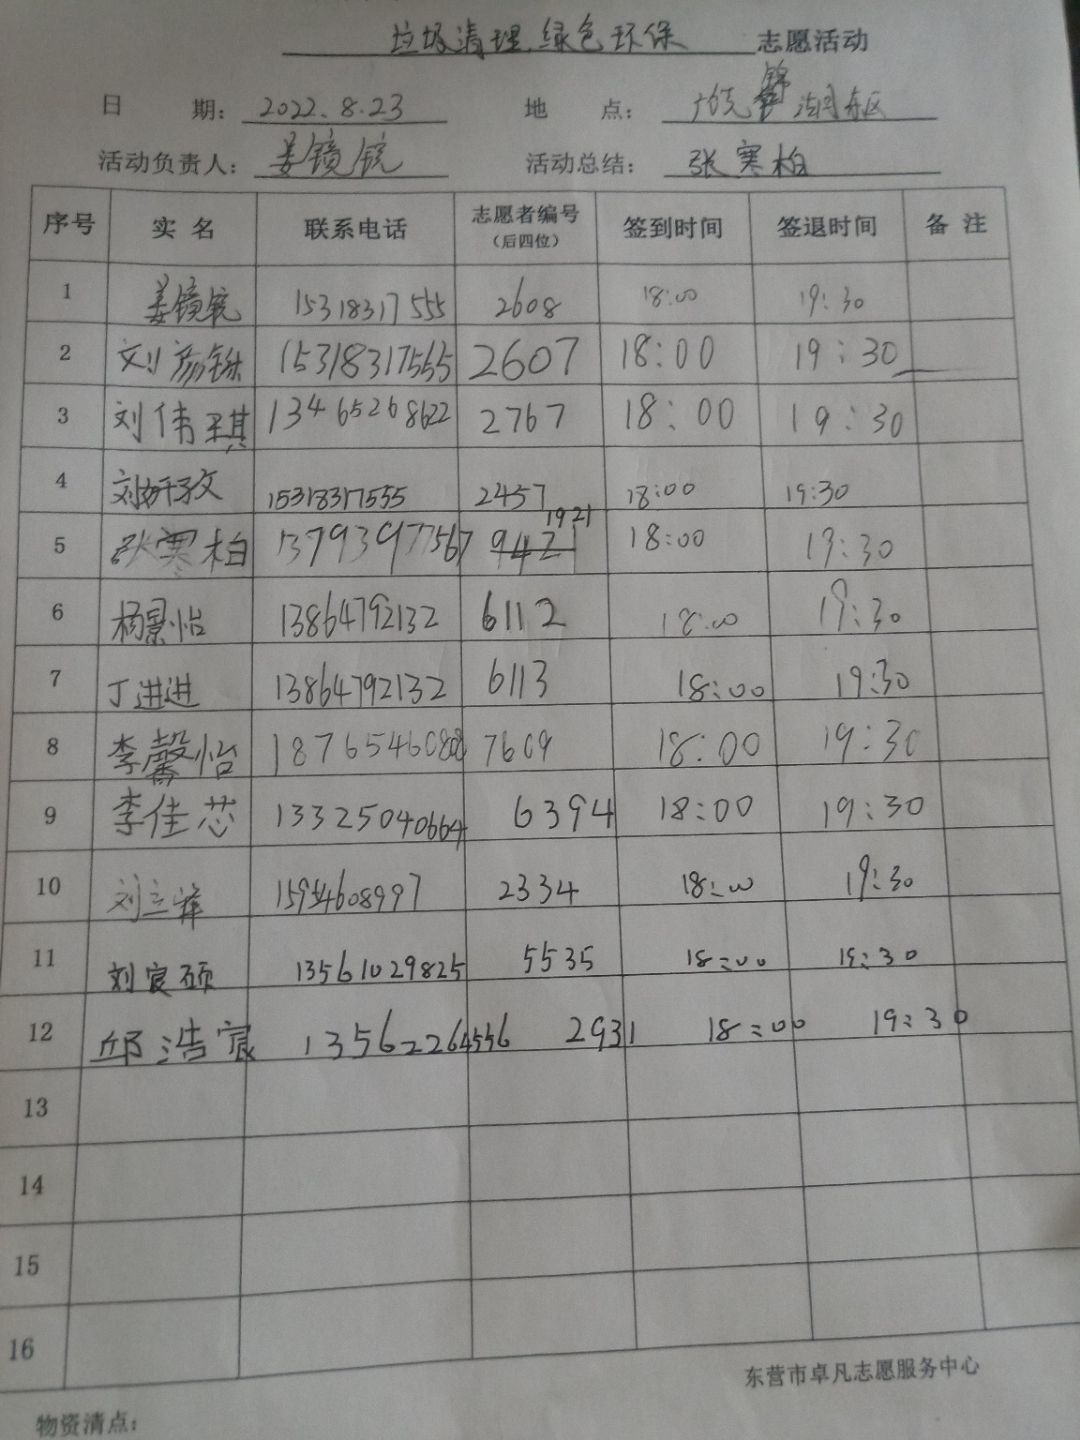 垃圾清理,绿色环保 志愿活动
日 期: 2022.8.23 地 点: 广饶 锦湖 东区
活动负责人: 姜镜锍 活动总结: 张寒柏
序号 实名 联系电话 志愿者编号(后四位) 签到时间 签退时间 备注
1 姜镜锍 15318317555 2608 18:00 19:30
2 刘彦铄 15318317555 2607 18:00 19:30
3 刘伟琪 13465268622 2767 18:00 19:30
4 刘妍孜 15318317555 2457 18:00 19:30
5 张寒柏 13793977567 9421 1921 18:00 19:30
6 杨景怡 13864792132 6112 18:00 19:30
7 丁进进 13864792132 6113 18:00 19:30
8 李馨怡 18765460808 7609 18:00 19:30
9 李佳芯 13325040664 6394 18:00 19:30
10 刘立祥 15954608997 2334 18:00 19:30
11 刘宸硕 13561029825 5535 18:00 19:30
12 邱浩宸 13562264556 2931 18:00 19:30
13
14
15
16
东营市卓凡志愿服务中心
物资清点: